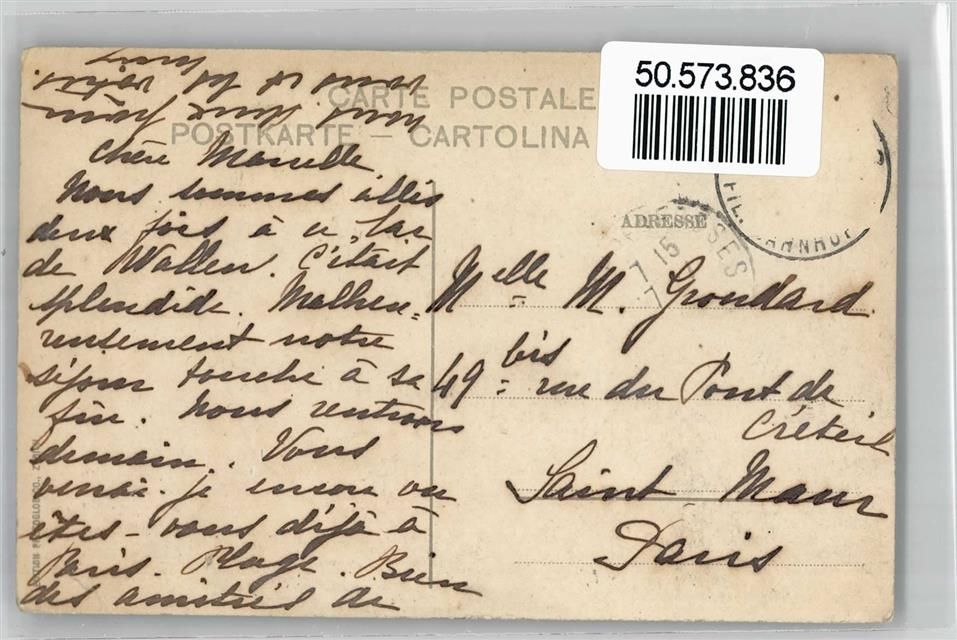 50.573.836
CARTE POSTALE
POSTKARTE — CARTOLINA
ADRESSE
Chère Marcelle
Nous sommes allés
deux fois à ce lac
de Wallen. C'était
splendide. Malheu=
reusement notre
séjour touche à sa
fin. Nous rentrons
demain. Vous
verrai-je encore ou
êtes-vous déjà à
Paris-Plage. Bien
des amitiés de
nous pour
M elle M. Grondard
49 bis rue du Pont de
Créteil
Saint Maur
Paris